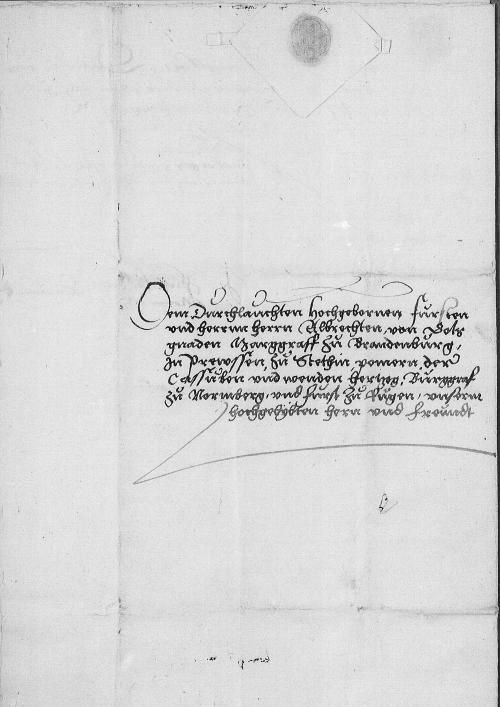 Dem Durchlauchten Hochgebornen Fursten
vnd herrnn herrn Albrechten von Gots
gnaden Marggraff zu Brandenburg,
In Prewssen, zu Stethin, pomern, der
Cassuben vnd wenden hertzog, Burggraf
zu Normberg, vnd furst zu Rugen, vnserm
hochgelybten hern vnd freundt